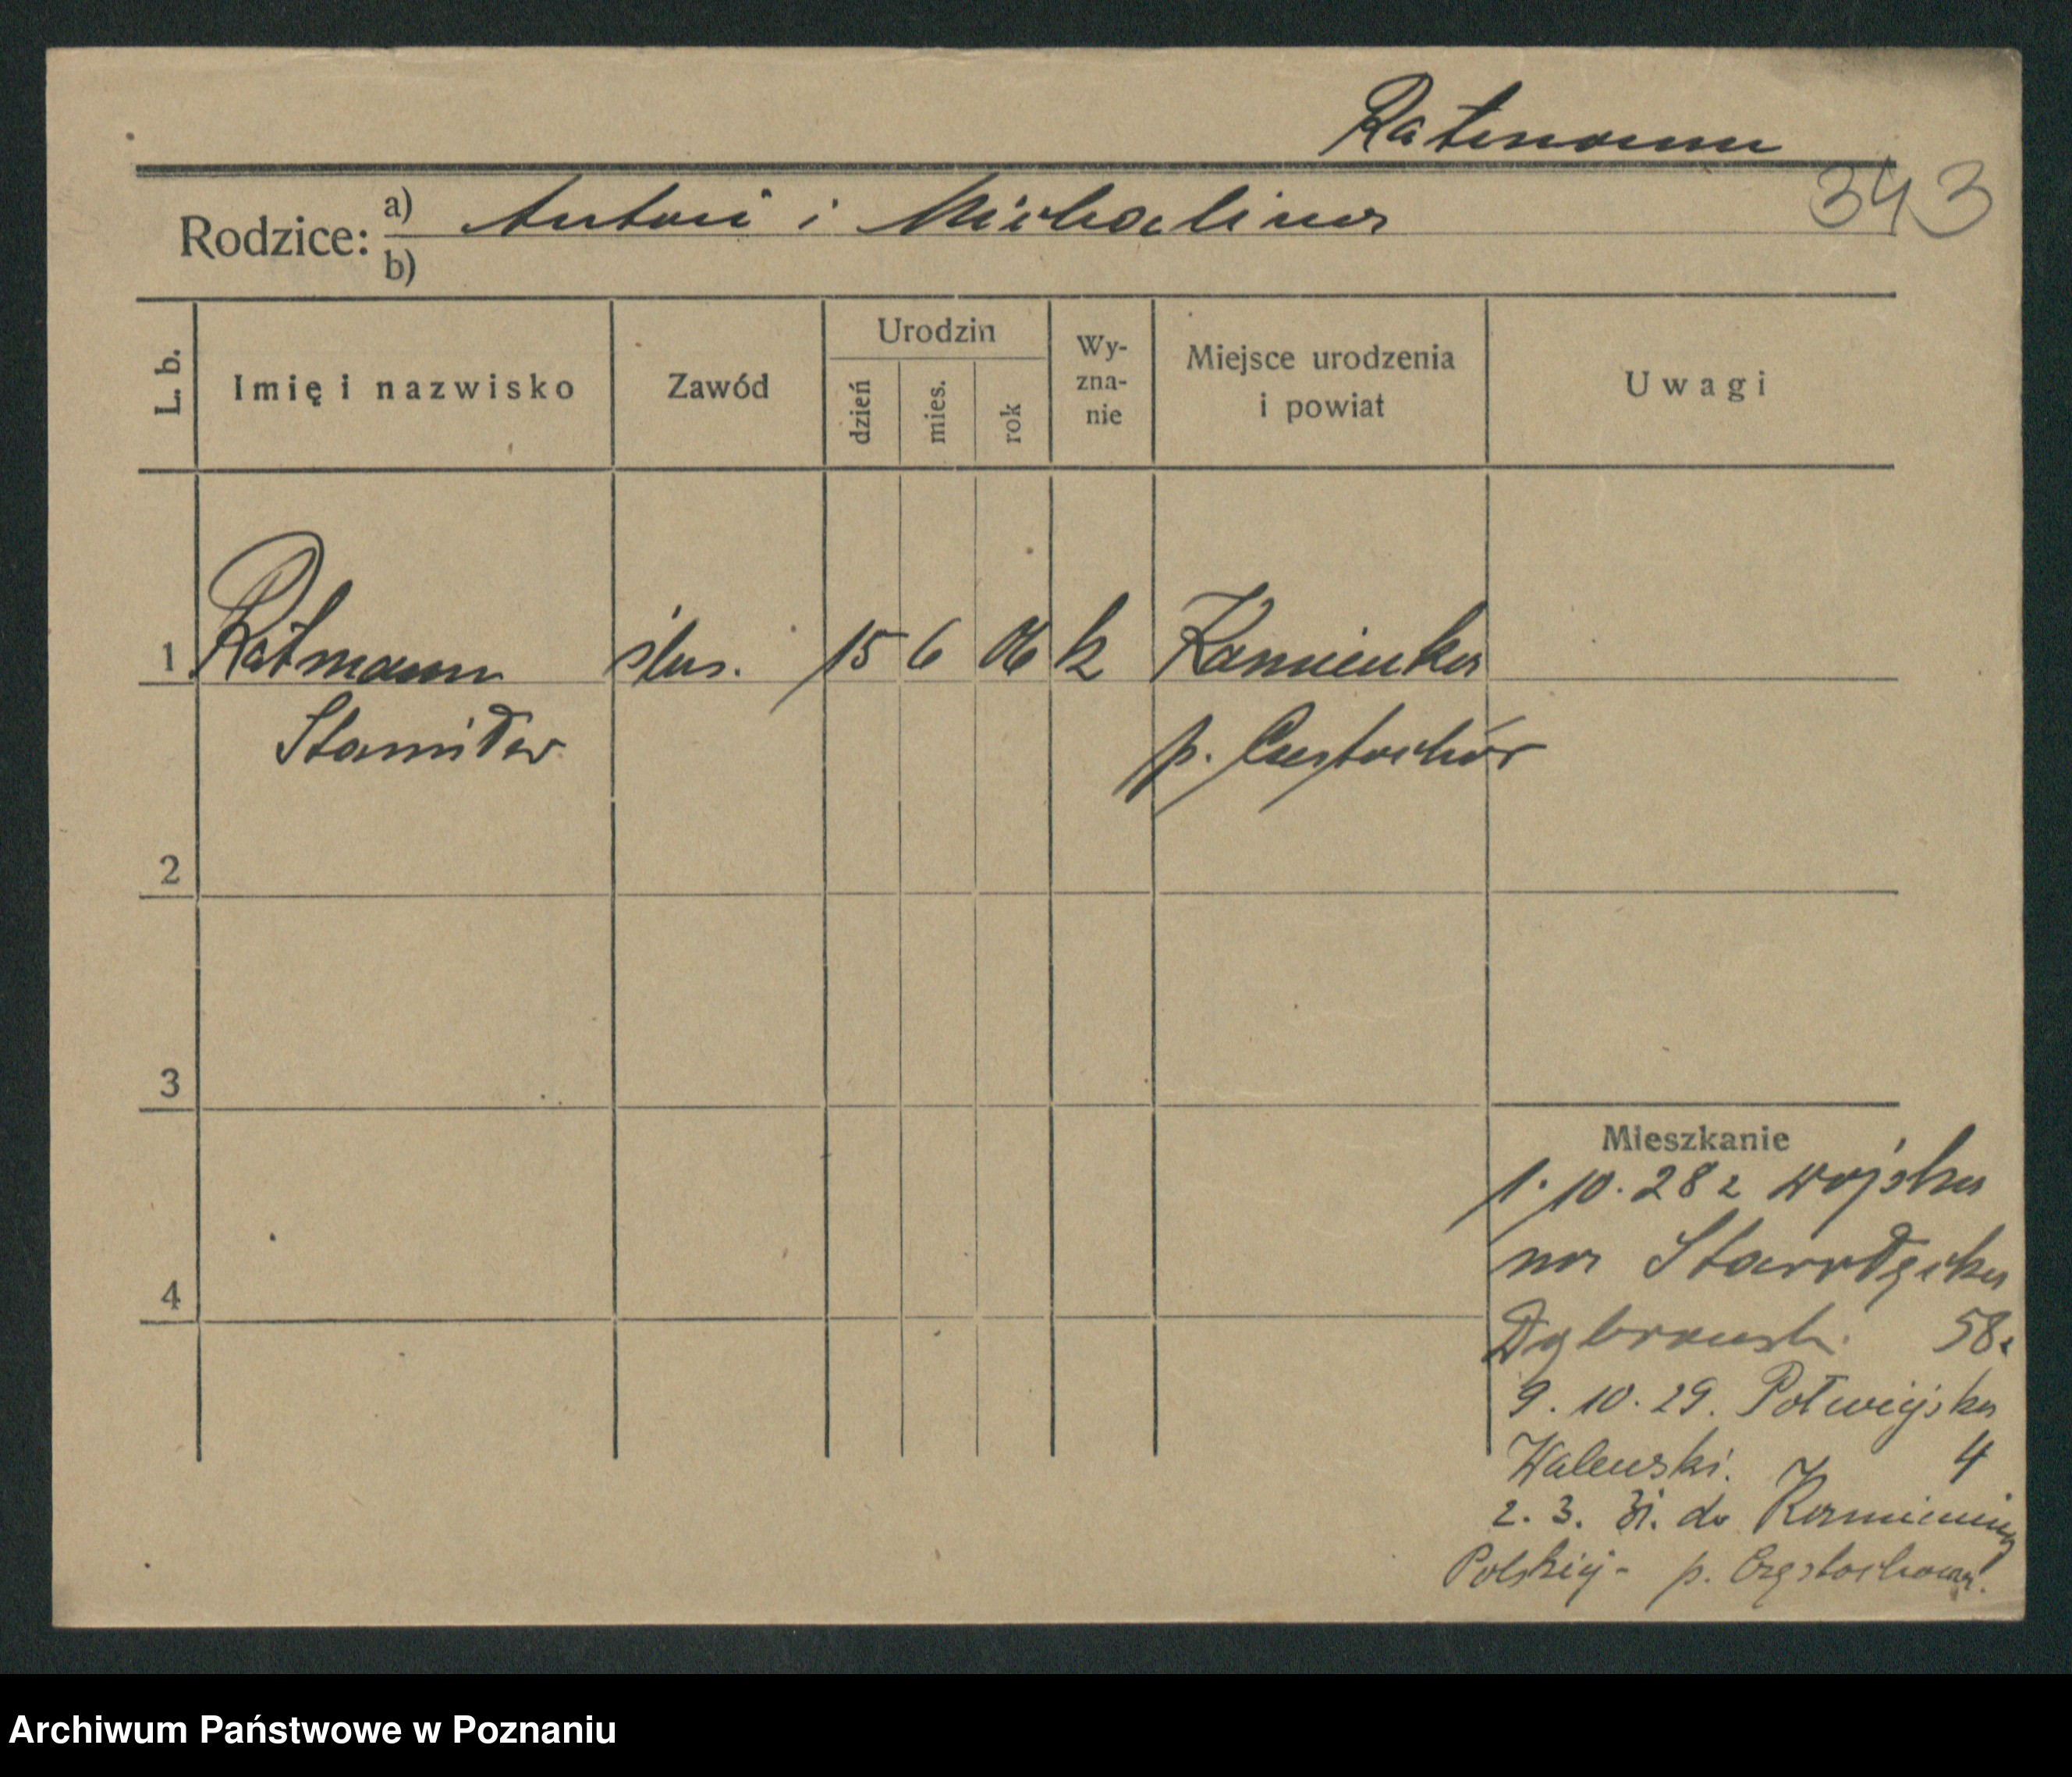 Ratmann
343
Rodzice: a) Antoni i Michalina
b)
L. b. Imię i nazwisko Zawód Urodzin dzień mies. rok Wy-zna-nie Miejsce urodzenia i powiat Uwagi
1 Ratmann ślus. 15 6 06 k Kamienka
Stanisław p. Częstochów
2
3
4
Mieszkanie
1. 10. 28 z wojska
na Starołęcka
Dąbrowsk. 58.
9. 10. 29. Półwiejska
Walewski. 4
2. 3. 31. do
Polskiej - p. Częstochowa.
Archiwum Państwowe w Poznaniu